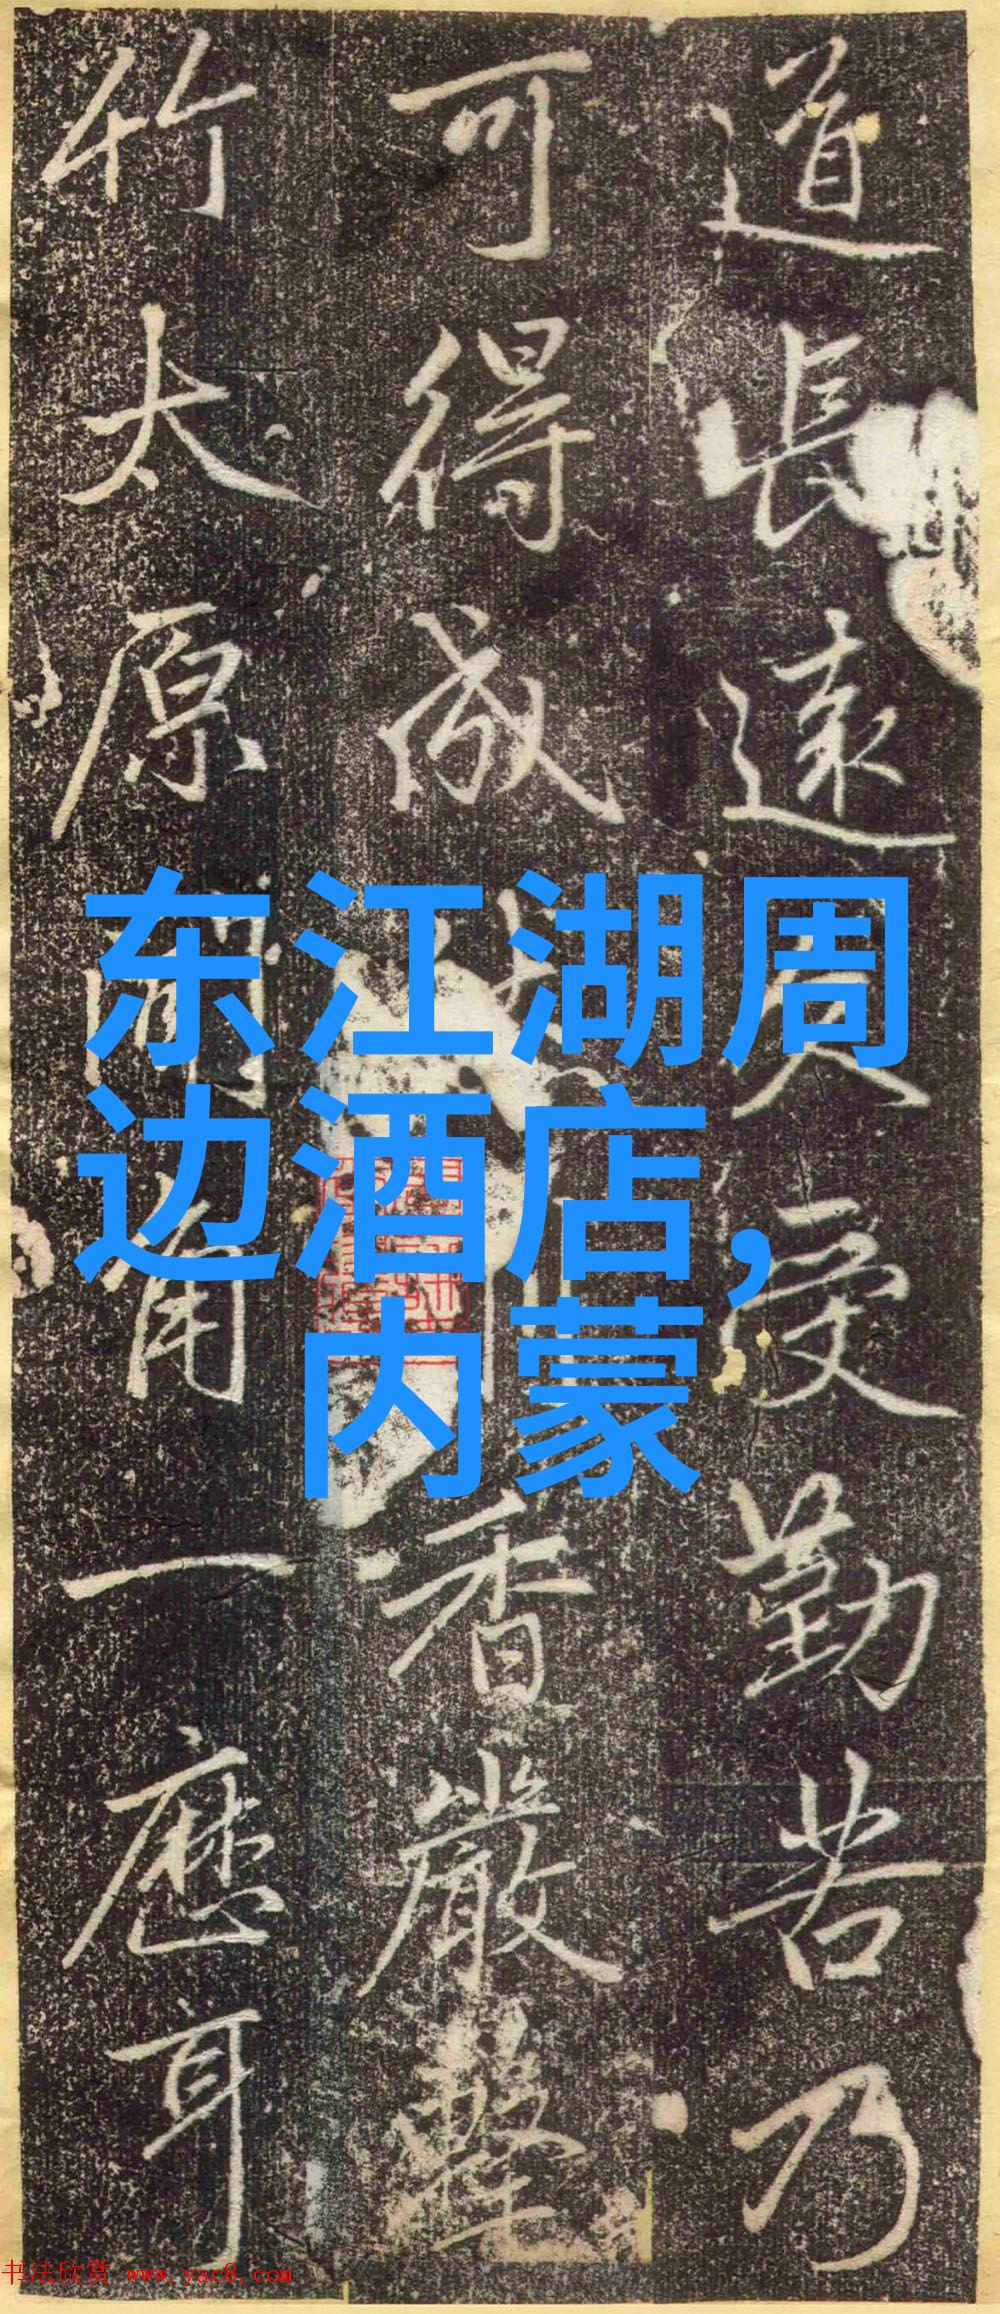 道長遠
受勤苦乃
可得成
香嚴擊
竹太原
角一應耳
东江湖周
边酒店，
内蒙
书法欣赏 www.yac8.com